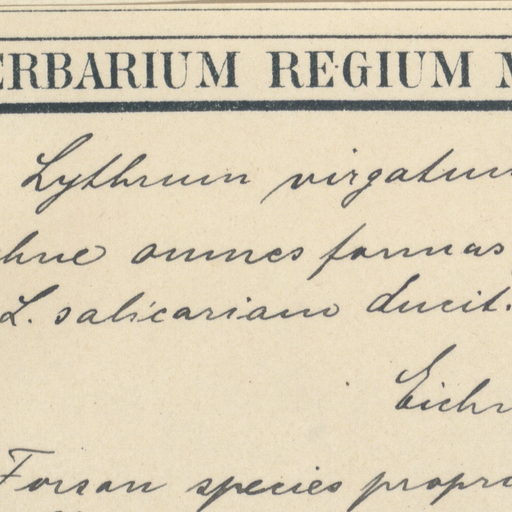 ERBARIUM REGIUM M
Lythrum virgatum
omnes formas
L. salicariam ducit.
Eichr
Forsan species propri